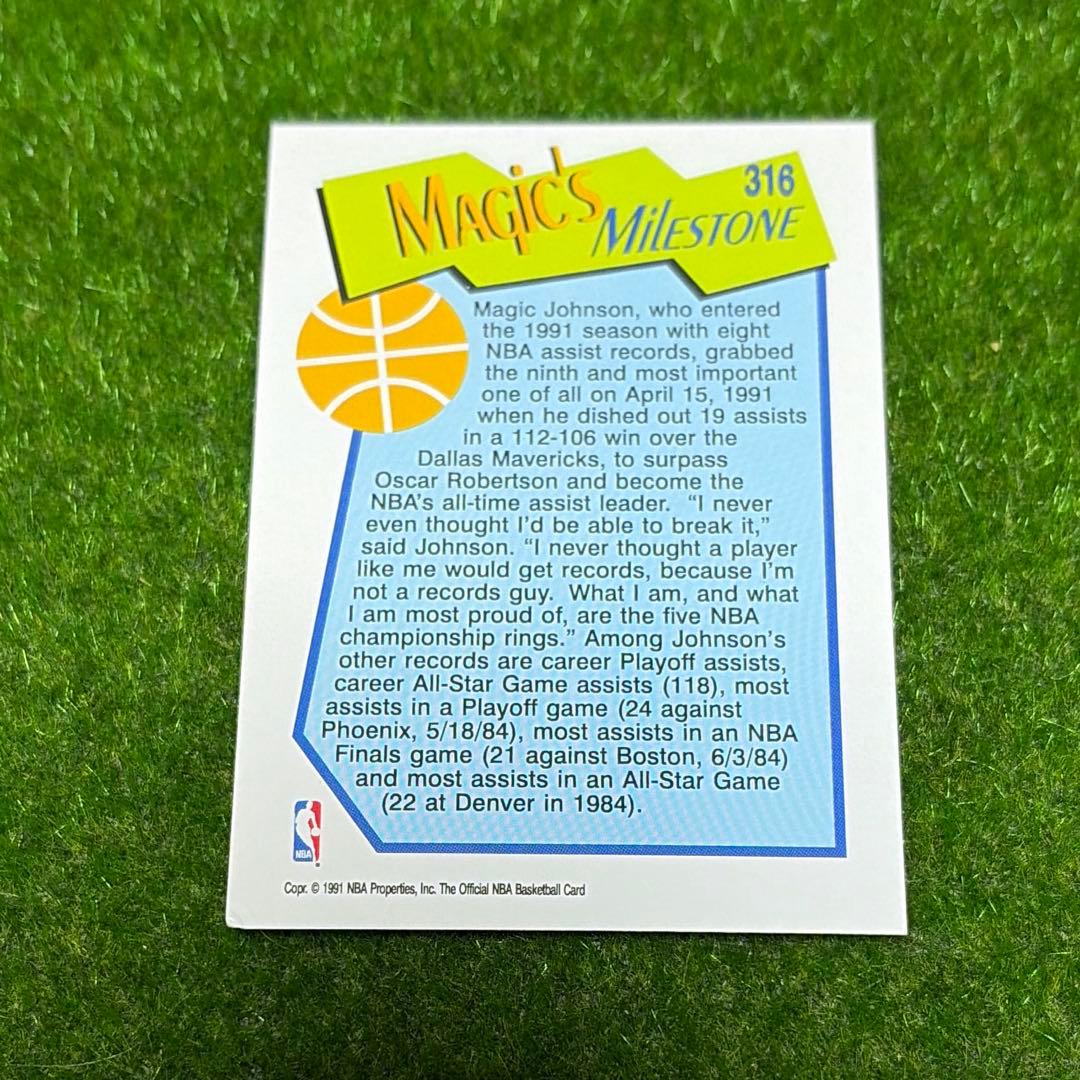 316
MAGIC'S
MILESTONE
Magic Johnson, who entered
the 1991 season with eight
NBA assist records, grabbed
the ninth and most important
one of all on April 15, 1991
when he dished out 19 assists
in a 112-106 win over the
Dallas Mavericks, to surpass
Oscar Robertson and become the
NBA's all-time assist leader. “I never
even thought I'd be able to break it,”
said Johnson. “I never thought a player
like me would get records, because I'm
not a records guy. What I am, and what
I am most proud of, are the five NBA
championship rings.” Among Johnson's
other records are career Playoff assists,
career All-Star Game assists (118), most
assists in a Playoff game (24 against
Phoenix, 5/18/84), most assists in an NBA
Finals game (21 against Boston, 6/3/84)
and most assists in an All-Star Game
(22 at Denver in 1984).
NBA
Copr. © 1991 NBA Properties, Inc. The Official NBA Basketball Card